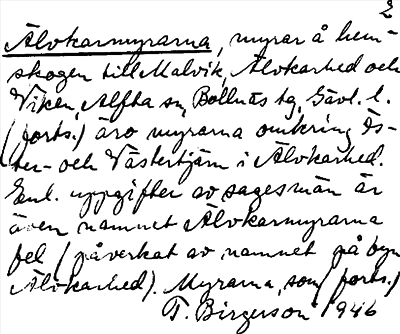 2
Älvkarmyrarna, myrar å hem-
skogen till Malvik, Älvkarhed och
Viken, Alfta sn, Bollnäs tg, Gävl. l.
(forts.) äro myrarna omkring Ös-
ter- och Västertjärn i Älvkarhed.
Enl. uppgifter av sagesmän är
även namnet Älvkarmyrarna
fel (påverkat av namnet på byn
Älvkarhed). Myrarna, som (forts.)
T. Birgerson 1946